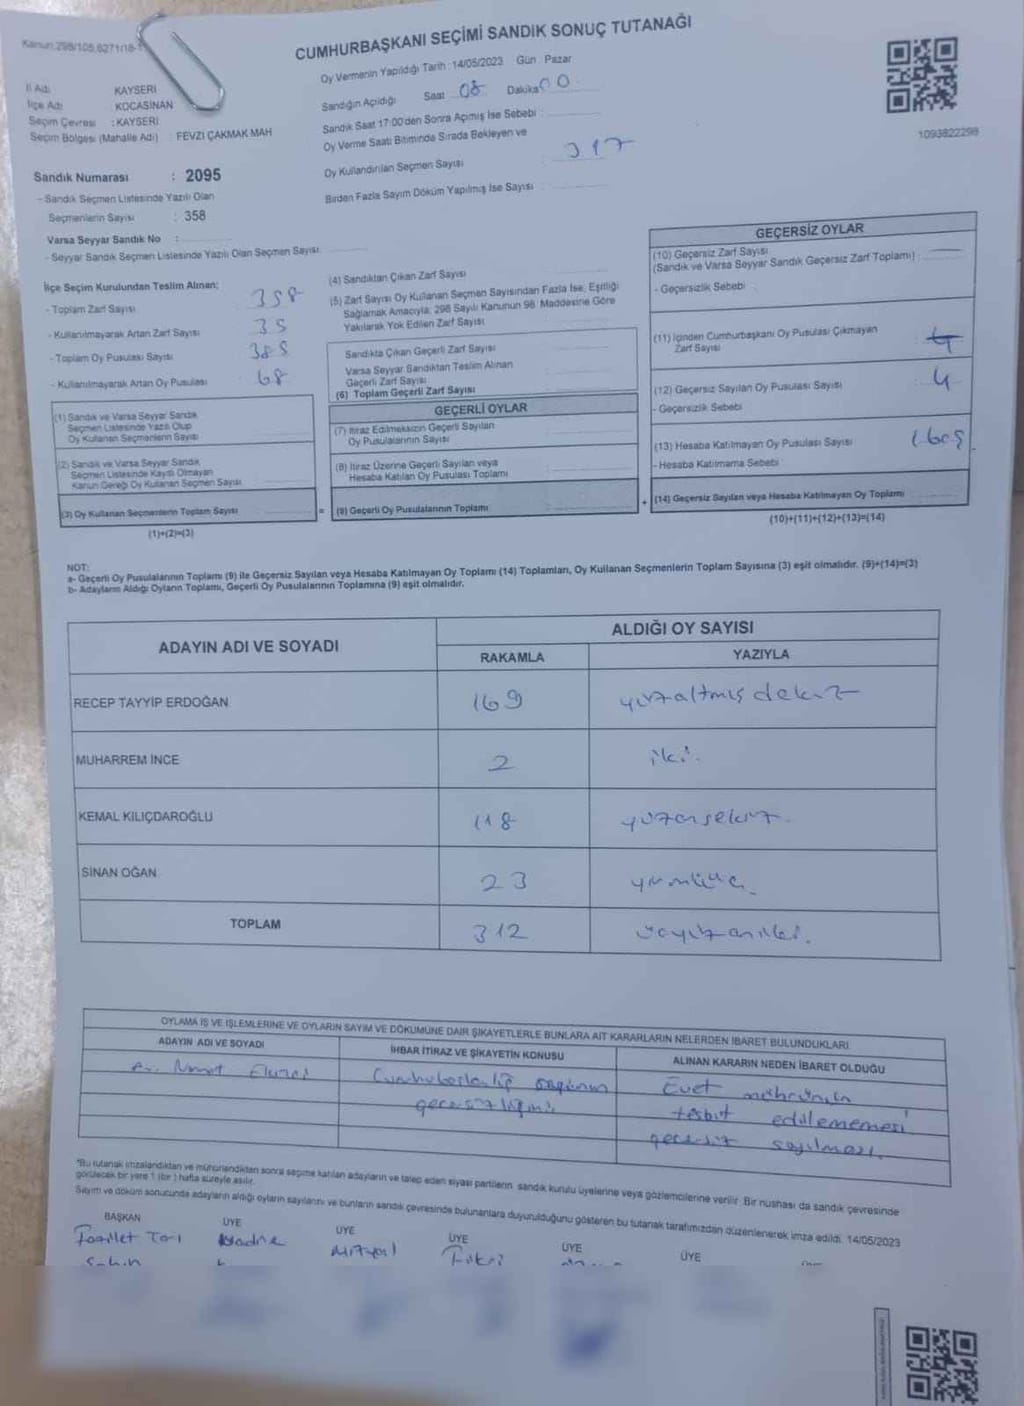 Kanun:298/105,6271/18-1
CUMHURBAŞKANI SEÇİMİ SANDIK SONUÇ TUTANAĞI
İl Adı KAYSERİ
İlçe Adı KOCASİNAN
Seçim Çevresi : KAYSERİ
Seçim Bölgesi (Mahalle Adı) : FEVZİ ÇAKMAK MAH
Oy Vermenin Yapıldığı Tarih : 14/05/2023 Gün : Pazar
Sandığın Açıldığı Saat 08 Dakika 00
Sandık Saat 17:00'den Sonra Açımış İse Sebebi :
Oy Verme Saati Bitiminde Sırada Bekleyen ve
Oy Kullandırılan Seçmen Sayısı 317
Birden Fazla Sayım Döküm Yapılmış İse Sayısı :
1093822298
Sandık Numarası : 2095
- Sandık Seçmen Listesinde Yazılı Olan
Seçmenlerin Sayısı : 358
Varsa Seyyar Sandık No :
- Seyyar Sandık Seçmen Listesinde Yazılı Olan Seçmen Sayısı:
İlçe Seçim Kurulundan Teslim Alınan:
- Toplam Zarf Sayısı 358
- Kullanılmayarak Artan Zarf Sayısı 35
- Toplam Oy Pusulası Sayısı 385
- Kullanılmayarak Artan Oy Pusulası 68
(1) Sandık ve Varsa Seyyar Sandık
Seçmen Listesinde Yazılı Olup
Oy Kullanan Seçmenlerin Sayısı
(2) Sandık ve Varsa Seyyar Sandık
Seçmen Listesinde Kayıtlı Olmayan
Kanun Gereği Oy Kullanan Seçmen Sayısı
(3) Oy Kullanan Seçmenlerin Toplam Sayısı =
(1)+(2)=(3)
(4) Sandıktan Çıkan Zarf Sayısı
(5) Zarf Sayısı Oy Kullanan Seçmen Sayısından Fazla İse, Eşitliği
Sağlamak Amacıyla; 298 Sayılı Kanunun 98. Maddesine Göre
Yakılarak Yok Edilen Zarf Sayısı
Sandıkta Çıkan Geçerli Zarf Sayısı
Varsa Seyyar Sandıktan Teslim Alınan
Geçerli Zarf Sayısı
(6) Toplam Geçerli Zarf Sayısı
GEÇERLİ OYLAR
(7) İtiraz Edilmeksizin Geçerli Sayılan
Oy Pusulalarının Sayısı
(8) İtiraz Üzerine Geçerli Sayılan veya
Hesaba Katılan Oy Pusulası Toplamı
(9) Geçerli Oy Pusulalarının Toplamı +
GEÇERSİZ OYLAR
(10) Geçersiz Zarf Sayısı
(Sandık ve Varsa Seyyar Sandık Geçersiz Zarf Toplamı) :
- Geçersizlik Sebebi
(11) İçinden Cumhurbaşkanı Oy Pusulası Çıkmayan
Zarf Sayısı
(12) Geçersiz Sayılan Oy Pusulası Sayısı 4
- Geçersizlik Sebebi
(13) Hesaba Katılmayan Oy Pusulası Sayısı
- Hesaba Katılmama Sebebi
(14) Geçersiz Sayılan veya Hesaba Katılmayan Oy Toplamı
(10)+(11)+(12)+(13)=(14)
NOT:
a- Geçerli Oy Pusulalarının Toplamı (9) ile Geçersiz Sayılan veya Hesaba Katılmayan Oy Toplamı (14) Toplamları, Oy Kullanan Seçmenlerin Toplam Sayısına (3) eşit olmalıdır. (9)+(14)=(3)
b- Adayların Aldığı Oyların Toplamı, Geçerli Oy Pusulalarının Toplamına (9) eşit olmalıdır.
ADAYIN ADI VE SOYADI ALDIĞI OY SAYISI
RAKAMLA YAZIYLA
RECEP TAYYİP ERDOĞAN 169
MUHARREM İNCE 2 iki.
KEMAL KILIÇDAROĞLU 118 yüzonsekiz.
SİNAN OĞAN 23 yirmiüç.
TOPLAM 312 üçyüzoniki.
OYLAMA İŞ VE İŞLEMLERİNE VE OYLARIN SAYIM VE DÖKÜMÜNE DAİR ŞİKAYETLERLE BUNLARA AİT KARARLARIN NELERDEN İBARET BULUNDUKLARI
ADAYIN ADI VE SOYADI İHBAR İTİRAZ VE ŞİKAYETİN KONUSU ALINAN KARARIN NEDEN İBARET OLDUĞU
Cumhurbaşkanlığı Evet mührünün
geçersizliğini tesbit edilememesi
geçersiz sayılması.
*Bu tutanak imzalandıktan ve mühürlendikten sonra seçime katılan adayların ve talep eden siyasi partilerin sandık kurulu üyelerine veya gözlemcilerine verilir. Bir nüshası da sandık çevresinde
görülecek bir yere 1 (bir) hafta süreyle asılır.
Sayım ve döküm sonucunda adayların aldığı oyların sayılarını ve bunların sandık çevresinde bulunanlara duyurulduğunu gösteren bu tutanak tarafımızdan düzenlenerek imza edildi. 14/05/2023
BAŞKAN ÜYE ÜYE ÜYE ÜYE ÜYE
Fazilet